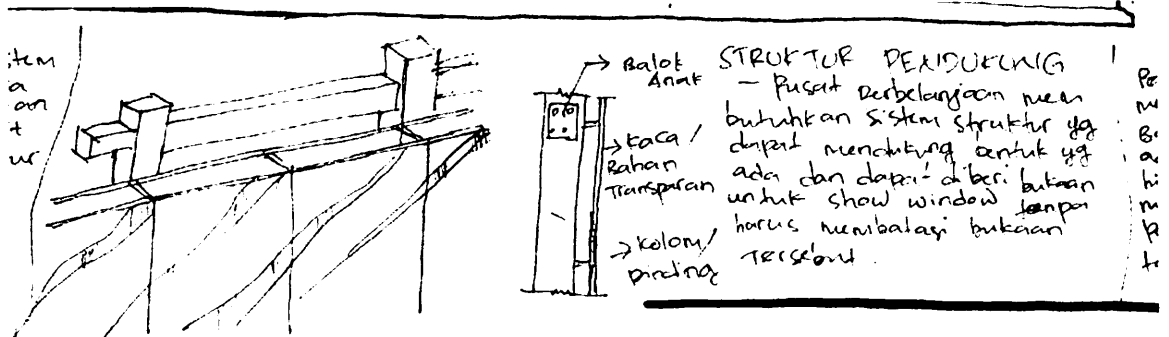 tem
a
an
t
ur
→ Balok
Anak
→ Kaca /
Bahan
Transparan
→ Kolom /
Dinding
STRUKTUR PENDUKUNG
- Pusat Perbelanjaan mem
butuhkan sistem struktur yg
dapat mendukung bentuk yg
ada dan dapat diberi bukaan
untuk show window tanpa
harus membatasi bukaan
Tersebut.